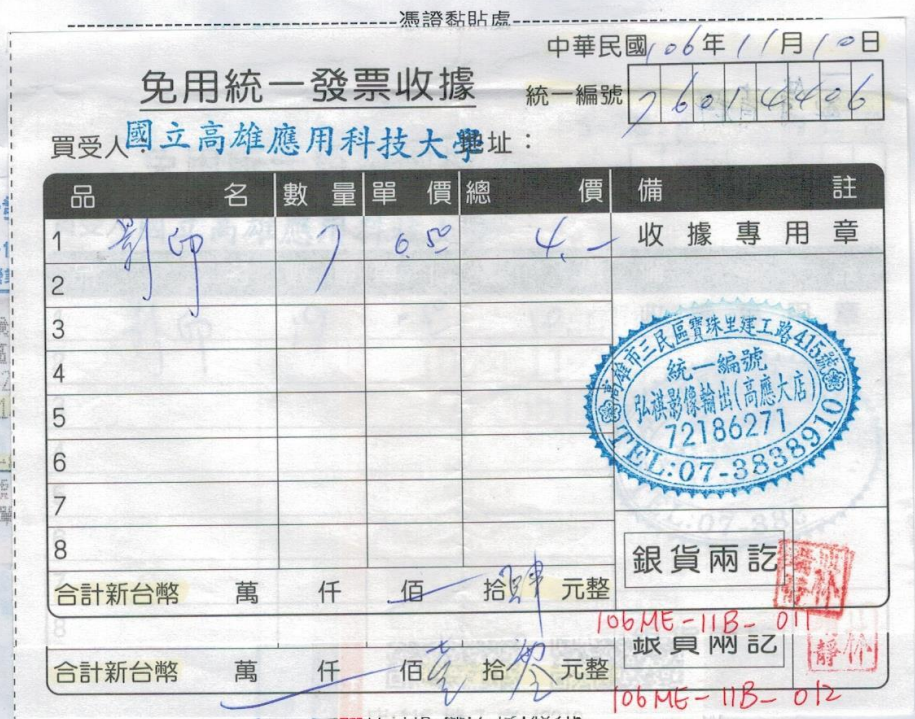 憑證黏貼處
中華民國106年11月10日
免用統一發票收據
統一編號 76014406
買受人：國立高雄應用科技大學 地址：
品名 數量 單價 總價 備註
1 影印 7 0.50 4.- 收據專用章
2
3
高雄市三民區寶珠里建工路415號
4
統一編號
弘祺影像輸出(高應大店)
5
72186271
TEL:07-3838910
6
7
8
銀貨兩訖
合計新台幣 萬 仟 佰 拾肆元整
106ME-11B-011
銀貨兩訖
合計新台幣 萬 仟 佰壹拾零元整
106ME-11B-012